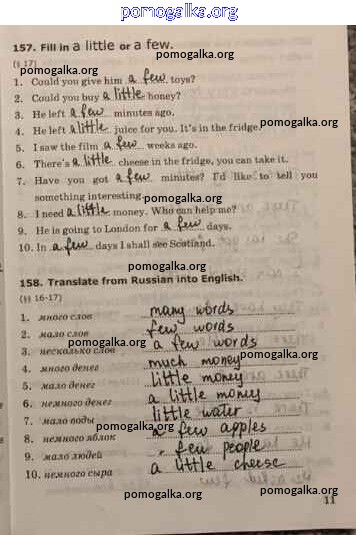 pomogalka.org
157. Fill in a little or a few.
(§ 17)
pomogalka.org pomogalka.org
1. Could you give him a few toys?
pomogalka.org
2. Could you buy a little honey?
pomogalka.org
3. He left a few minutes ago.
4. He left a little juice for you. It's in the fridge. pomogalka.org
pomogalka.org
5. I saw the film a few weeks ago.
6. There's a little cheese in the fridge, you can take it.
pomogalka.org
7. Have you got a few minutes? I'd like to tell you
something interesting. pomogalka.org
8. I need a little money. Who can help me?
pomogalka.org
9. He is going to London for a few days.
10. In a few days I shall see Scotland.
pomogalka.org
pomogalka.org
158. Translate from Russian into English.
(§§ 16-17) pomogalka.org
1. много слов many words
2. мало слов few words
pomogalka.org
3. несколько слов a few words
4. много денег much money
pomogalka.org
5. мало денег little money
6. немного денег a little money
pomogalka.org
7. мало воды little water
8. немного яблок a few apples
pomogalka.org
9. мало людей few people
pomogalka.org
10. немного сыра a little cheese
pomogalka.org pomogalka.org
11
pomogalka.org